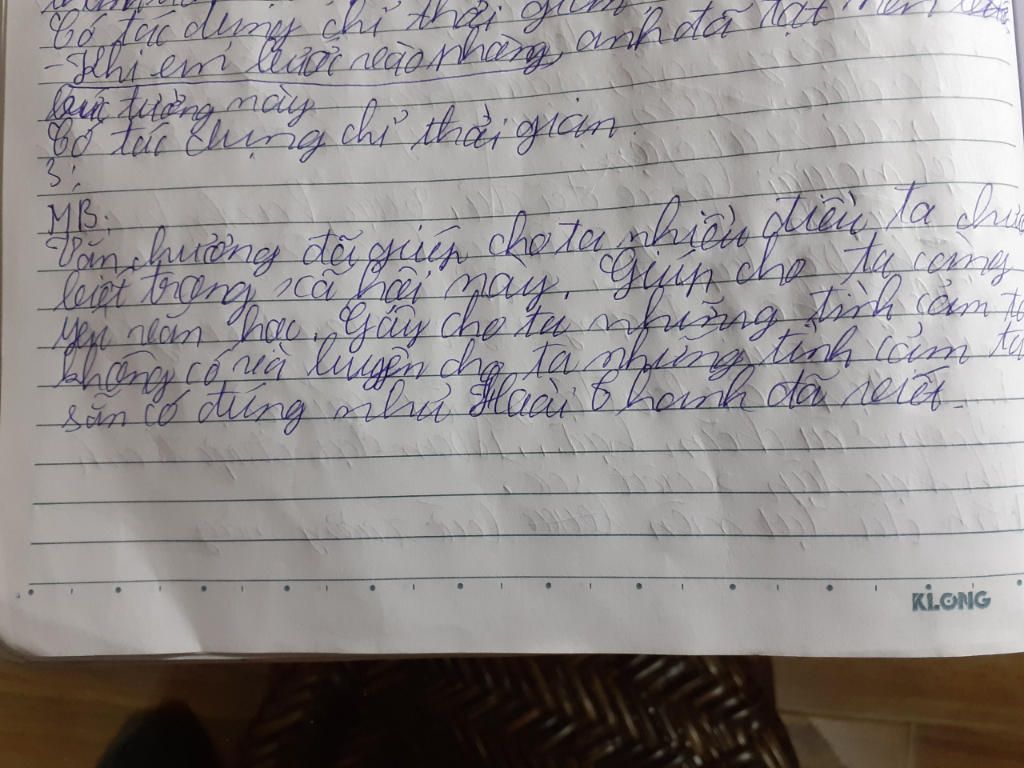 Có tác dụng chỉ thời gian
- Khi em bước vào nhà, anh đã tạt nên
bức tường này
Có tác dụng chỉ thời gian.
3:
MB:
Văn chương đã giúp cho ta nhiều điều ta chưa
biết trong xã hội này. Giúp cho ta càng
yêu văn học. Gây cho ta những tình cảm ta
không có và luyện cho ta những tình cảm ta
sẵn có đúng như Hoài Thanh đã viết.
KLONG